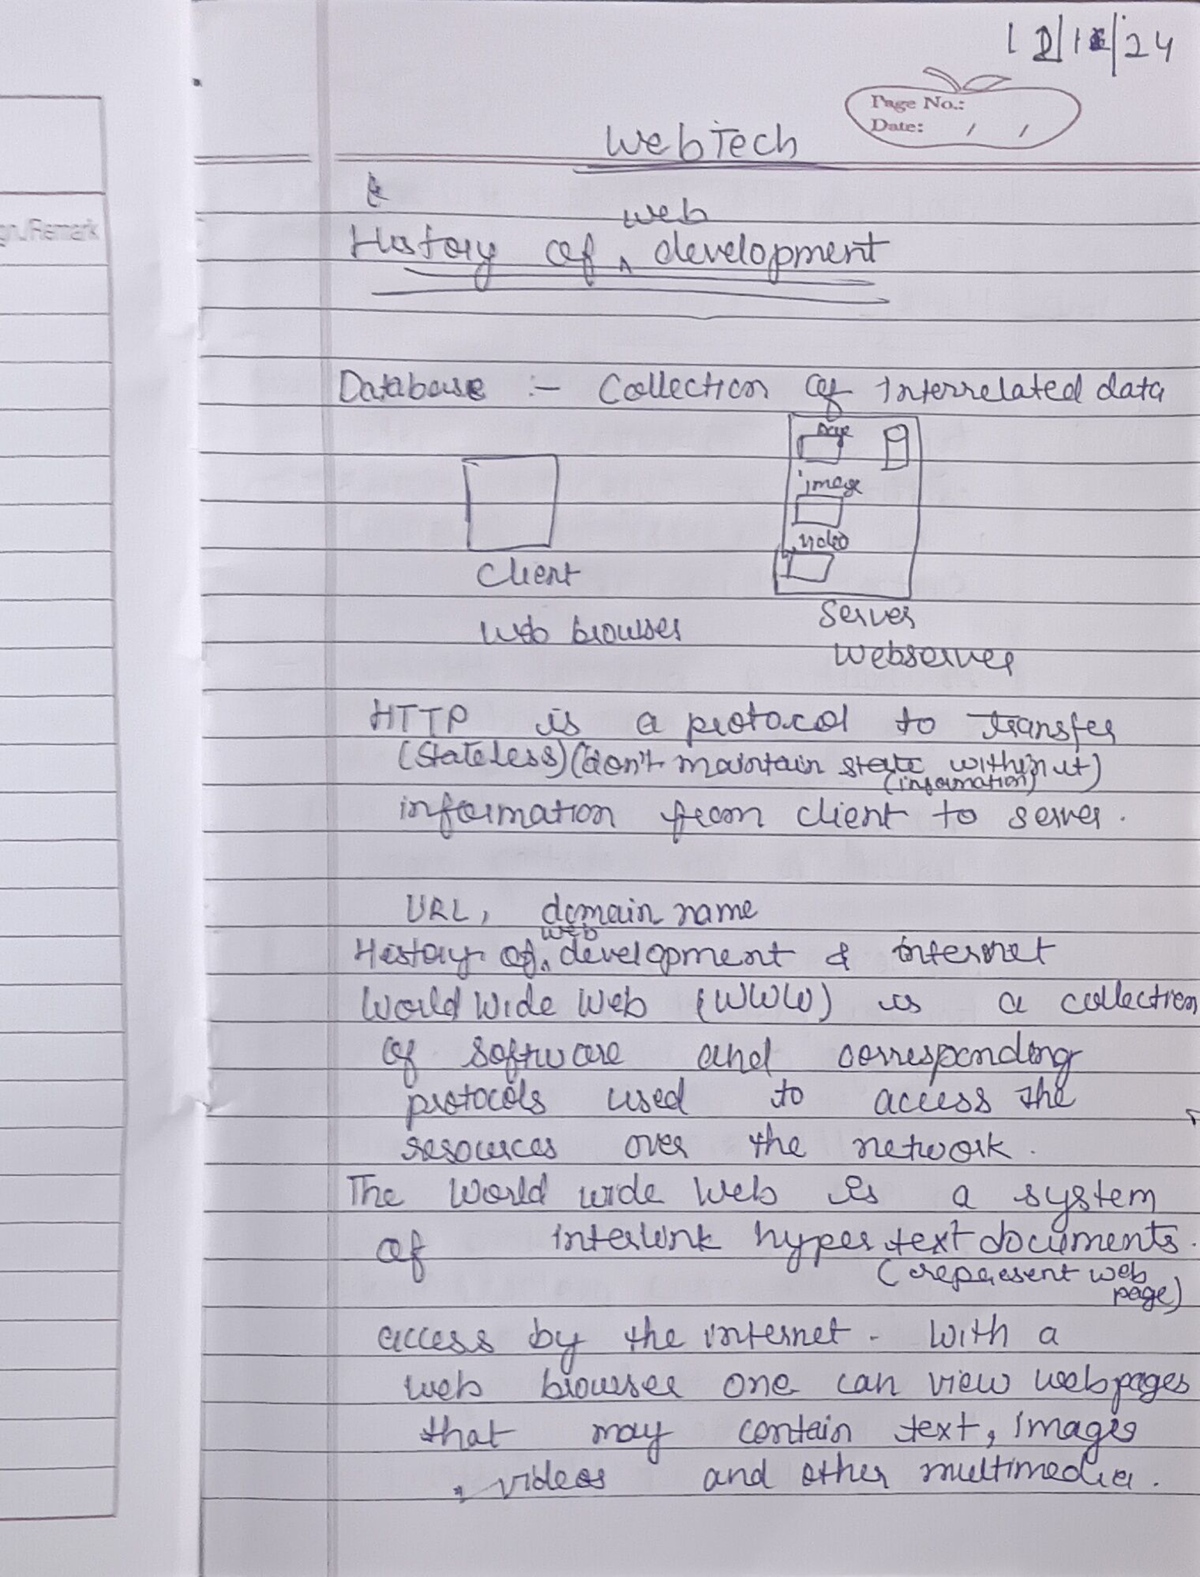 12/12/24
Page No.:
Date: / /
gn./Remark
WebTech
web
History of ʌ development
Database :- Collection of Interrelated data
page
image
video
Client
Web browser
Server
Webserver
HTTP is a protocol to transfer
(Stateless) (don't maintain state within ut)
(information)
information from client to server.
URL, domain name
web
History of ʌ development & internet
World Wide Web (WWW) is a collection
of software and corresponding
protocols used to access the
resources over the network.
The World wide Web is a system
of interlink hyper text documents.
(represent web
page)
access by the internet. With a
web browser one can view webpages
that may contain text, images
videos and other multimedia.